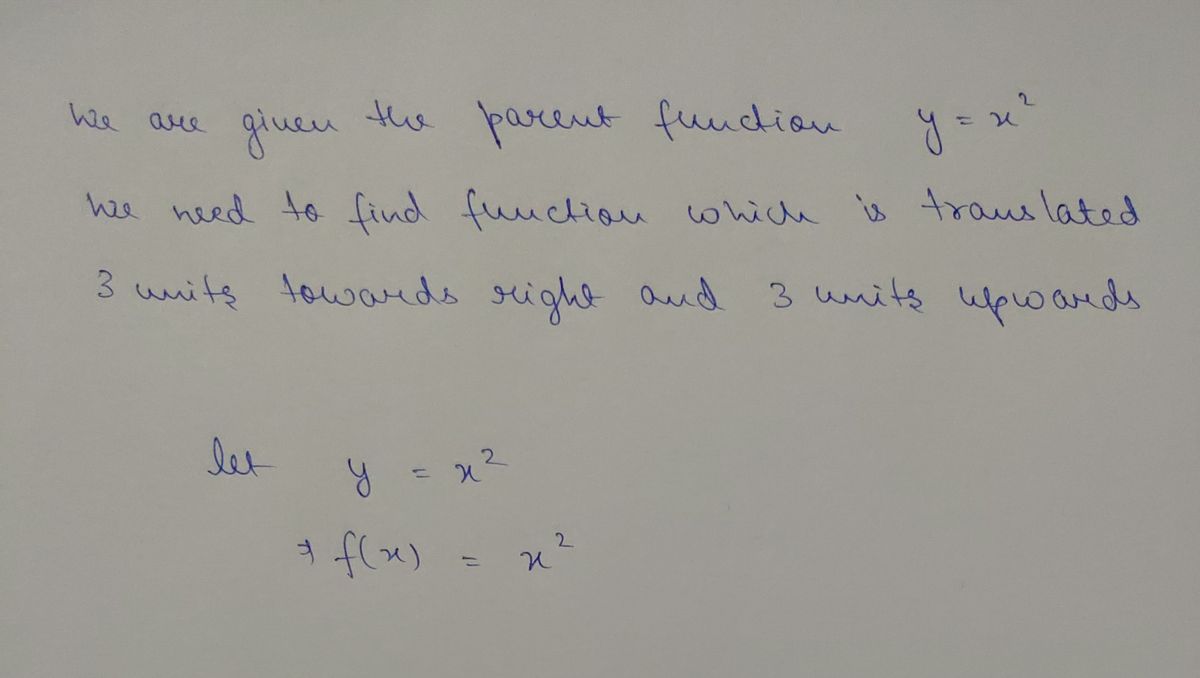 We are given the parent function y = x²
We need to find function which is translated
3 units towards right and 3 units upwards
let y = x²
⇒ f(x) = x²